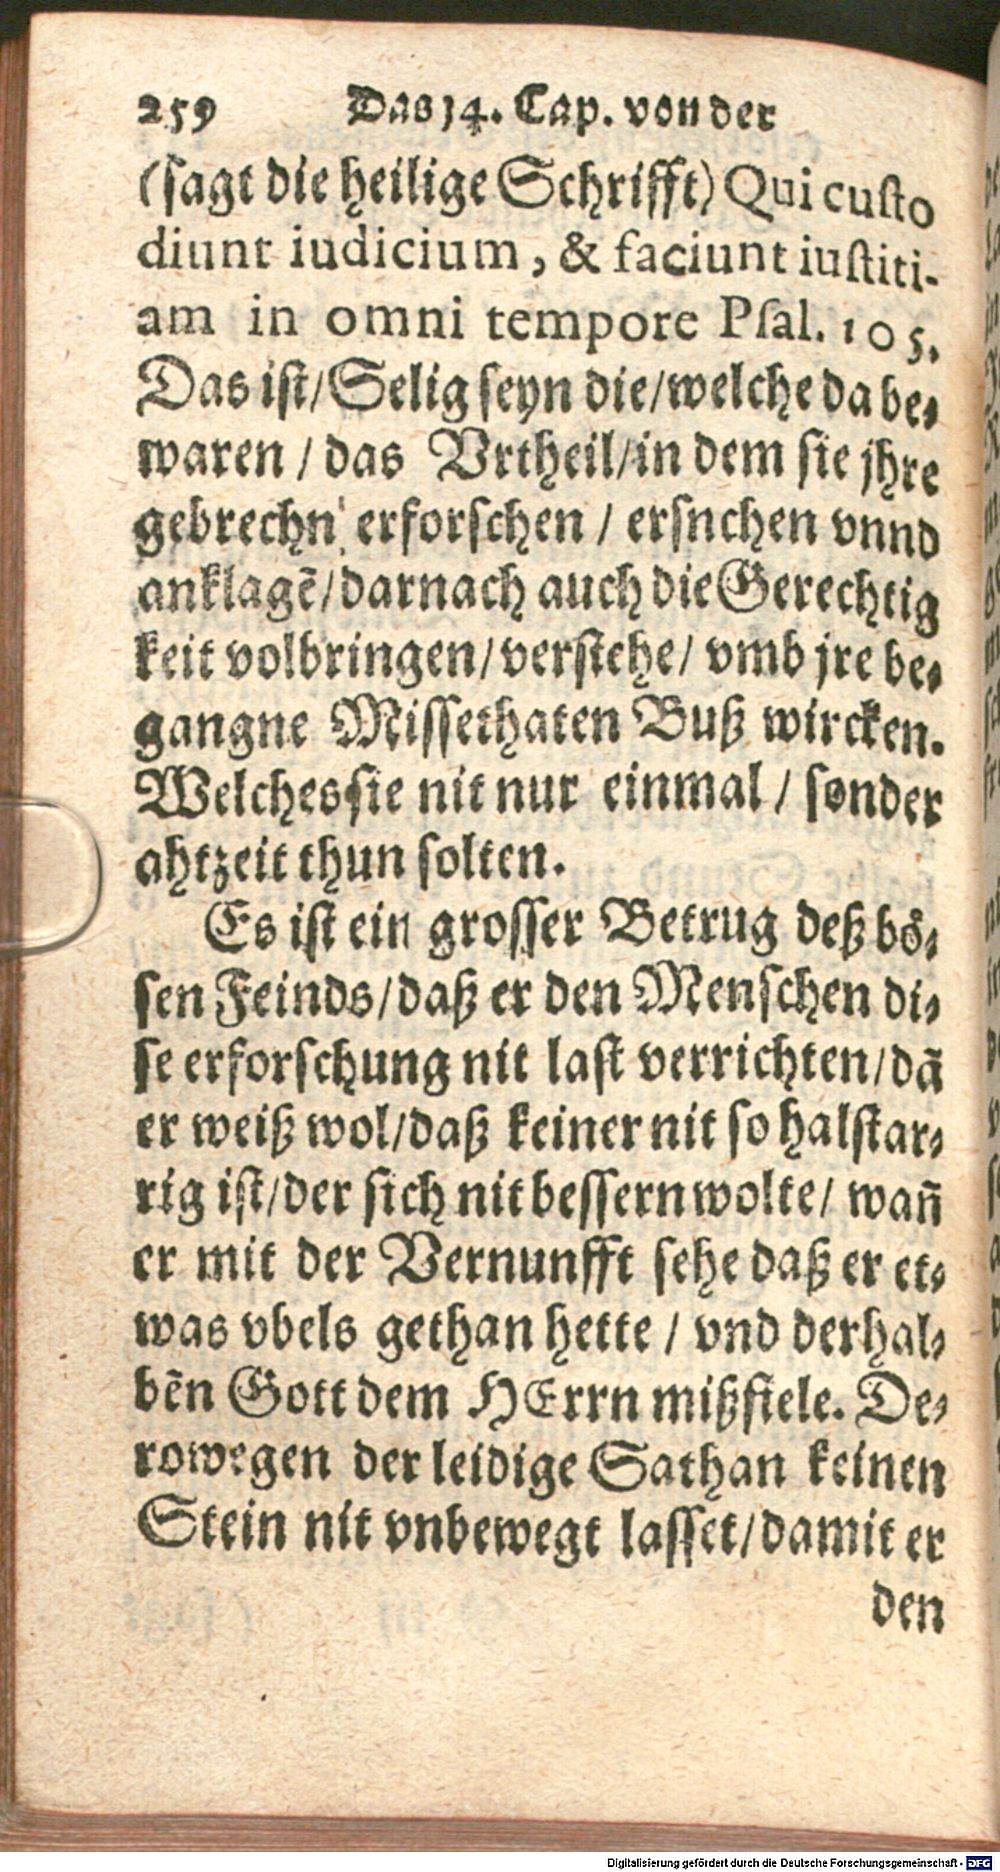 259 Das 14. Cap. von der
(sagt die heilige Schrifft) Qui custo
diunt iudicium, & faciunt iustiti-
am in omni tempore Psal. 105.
Das ist/ Selig seyn die/ welche da be-
waren / das Vrtheil/ in dem sie jhre
gebrechn' erforschen / ersnchen vnnd
anklagẽ/ darnach auch die Gerechtig
keit volbringen/ verstehe/ vmb jre be-
gangne Missethaten Buß wircken.
Welches sie nit nur einmal / sonder
ahtzeit thun solten.
Es ist ein grosser Betrug deß bö-
sen Feinds/ daß er den Menschen di-
se erforschung nit last verrichten/ dañ
er weiß wol/ daß keiner nit so halstar-
rig ist/ der sich nit bessern wolte/ wañ
er mit der Vernunfft sehe daß er et-
was vbels gethan hette / vnd derhal-
bẽn Gott dem HErrn mißfiele. De-
rowegen der leidige Sathan keinen
Stein nit vnbewegt lasset/ damit er
den
Digitalisierung gefördert durch die Deutsche Forschungsgemeinschaft - DFG